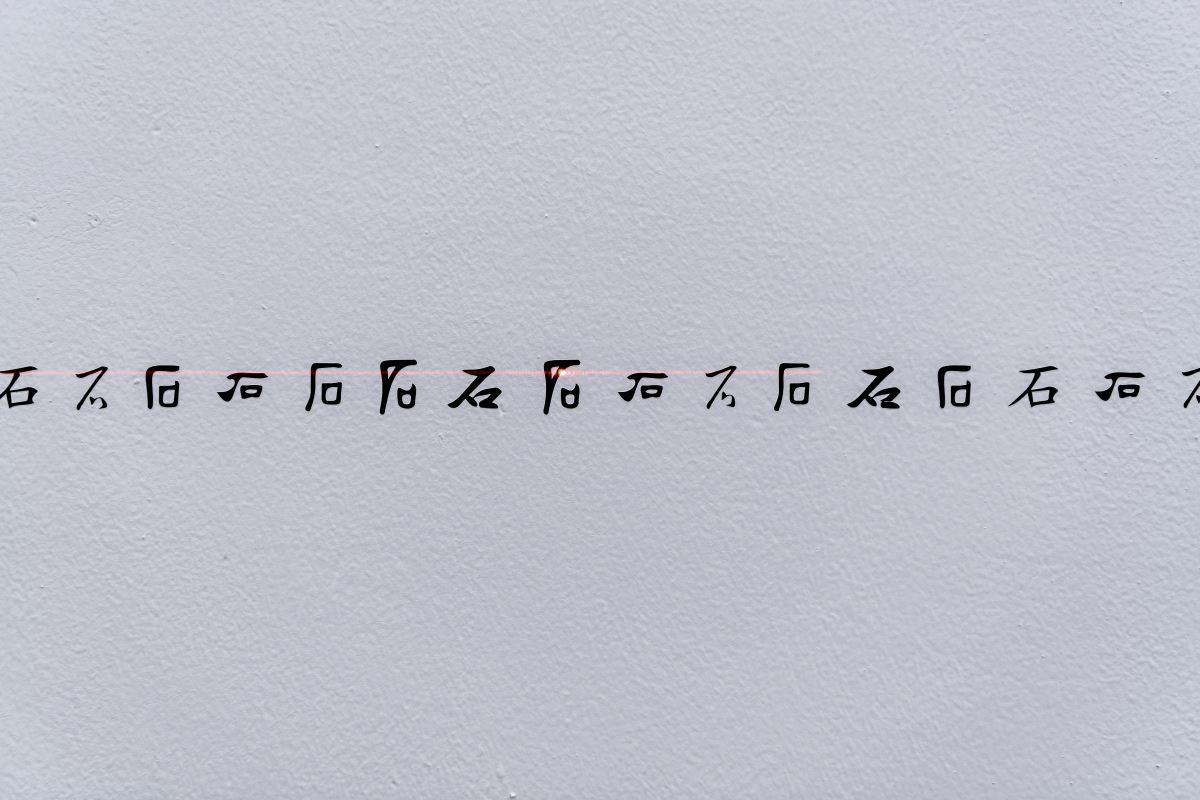 石石石石石石石石石石石石石石石石